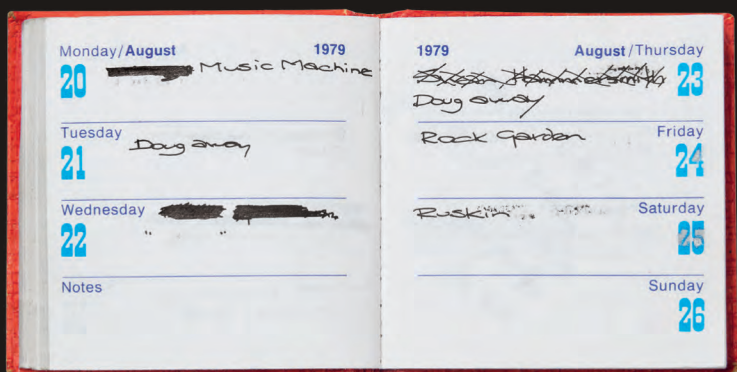 Monday/August 1979
20 Music Machine
Tuesday
21 Doug away
Wednesday
22
" "
Notes
1979 August/Thursday
23
Doug away
Rock Garden Friday
24
Ruskin Saturday
25
Sunday
26